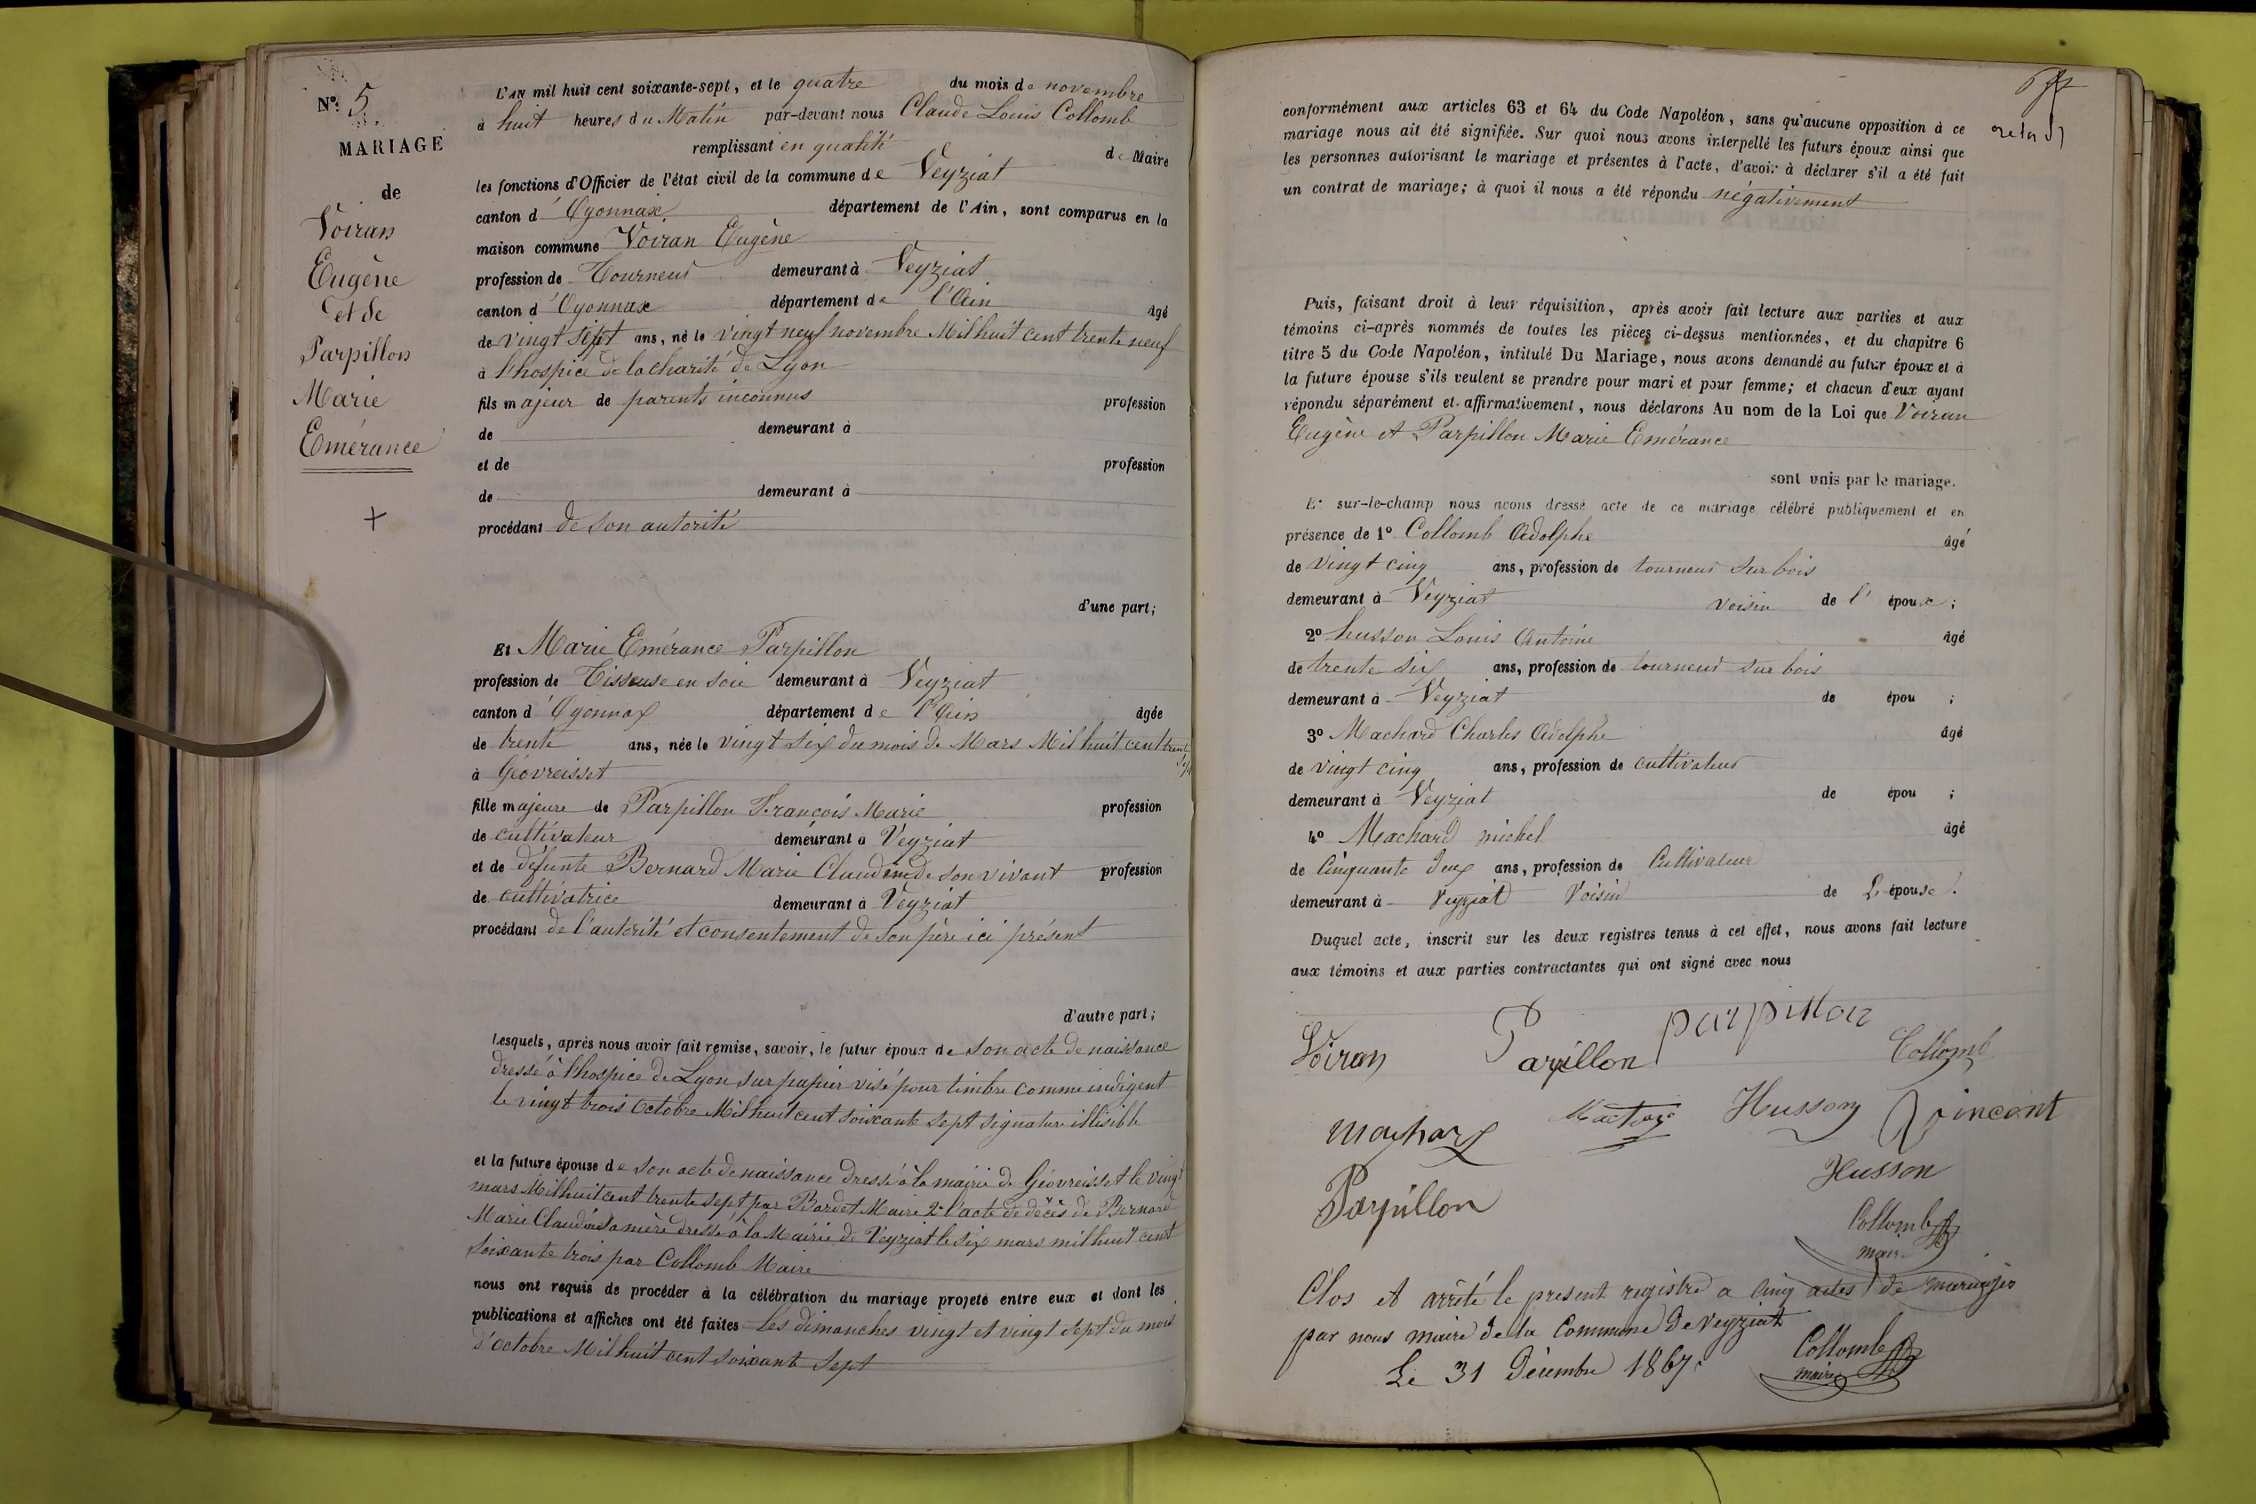 N° 5.
MARIAGE
de
Voiran
Eugène
et de
Parpillon
Marie
Emérance
L'AN mil huit cent soixante-sept, et le quatre du mois de novembre
à huit heures du Matin par-devant nous Claude Louis Collomb
remplissant en qualité de Maire
les fonctions d'Officier de l'état civil de la commune de Veyziat
canton d'Oyonnax département de l'Ain, sont comparus en la
maison commune Voiran Eugène
profession de Tourneur demeurant à Veyziat
canton d'Oyonnax département de l'Ain âgé
de vingt sept ans, né le vingt neuf novembre Mil huit cent trente neuf
à l'hospice de la charité de Lyon
fils majeur de parents inconnus profession
de demeurant à
et de profession
de demeurant à
procédant de son autorité
d'une part;
Et Marie Emérance Parpillon
profession de Tisseuse en soie demeurant à Veyziat
canton d'Oyonnax département de l'Ain âgée
de trente ans, née le vingt six du mois de Mars Mil huit cent trente
sept
à Géovreisset
fille majeure de Parpillon François Marie profession
de cultivateur demeurant à Veyziat
et de défunte Bernard Marie Claudine de son vivant profession
de cultivatrice demeurant à Veyziat
procédant de l'autorité et consentement de son père ici présent
d'autre part;
Lesquels, après nous avoir fait remise, savoir, le futur époux de son acte de naissance
dressé à l'hospice de Lyon sur papier visé pour timbre comme indigent
le vingt trois Octobre Mil huit cent soixante sept signature illisible
et la future épouse de son acte de naissance dressé à la mairie de Géovreisset le vingt
mars Mil huit cent trente sept par Bardet Maire 2° l'acte de décès de Bernard
Marie Claudine sa mère dressé à la Mairie de Veyziat le six mars mil huit cent
soixante trois par Collomb Maire
nous ont requis de procéder à la célébration du mariage projeté entre eux et dont les
publications et affiches ont été faites les dimanches vingt et vingt sept du mois
d'octobre Mil huit cent soixante sept
conformément aux articles 63 et 64 du Code Napoléon, sans qu'aucune opposition à ce
mariage nous ait été signifiée. Sur quoi nous avons interpellé les futurs époux ainsi que
les personnes autorisant le mariage et présentes à l'acte, d'avoir à déclarer s'il a été fait
un contrat de mariage; à quoi il nous a été répondu négativement
Puis, faisant droit à leur réquisition, après avoir fait lecture aux parties et aux
témoins ci-après nommés de toutes les pièces ci-dessus mentionnées, et du chapitre 6
titre 5 du Code Napoléon, intitulé Du Mariage, nous avons demandé au futur époux et à
la future épouse s'ils veulent se prendre pour mari et pour femme; et chacun d'eux ayant
répondu séparément et affirmativement, nous déclarons Au nom de la Loi que Voiran
Eugène et Parpillon Marie Emérance
sont unis par le mariage.
Et sur-le-champ nous avons dressé acte de ce mariage célébré publiquement et en
présence de 1° Collomb Adolphe âgé
de vingt cinq ans, profession de tourneur sur bois
demeurant à Veyziat voisin de l'époux;
2° husson Louis Antoine âgé
de trente six ans, profession de tourneur sur bois
demeurant à Veyziat de épou ;
3° Machard Charles Adolphe âgé
de vingt cinq ans, profession de cultivateur
demeurant à Veyziat de épou ;
4° Machard michel âgé
de Cinquante deux ans, profession de Cultivateur
demeurant à Veyziat Voisin de L'épouse.
Duquel acte, inscrit sur les deux registres tenus à cet effet, nous avons fait lecture
aux témoins et aux parties contractantes qui ont signé avec nous
Voiran Parpillon parpillon Collomb
machard Husson Vincent
Parpillon Husson
Collomb
maire
Clos et arrêté le present registre a cinq actes de mariages
par nous maire de la Commune de Veyziat
Le 31 Décembre 1867. Collomb
maire